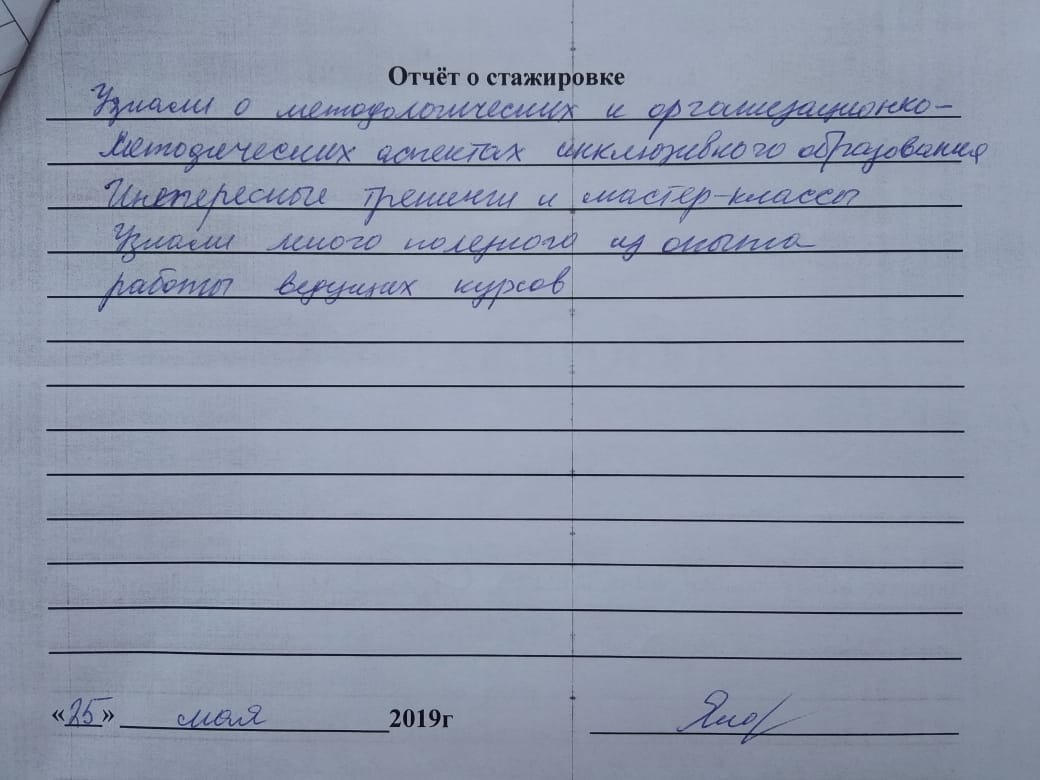 Отчёт о стажировке
Узнали о методологических и организационно-
методических аспектах инклюзивного образования
Интересные тренинги и мастер-классы
Узнали много полезного из опыта
работы ведущих курсов
«25» мая 2019г